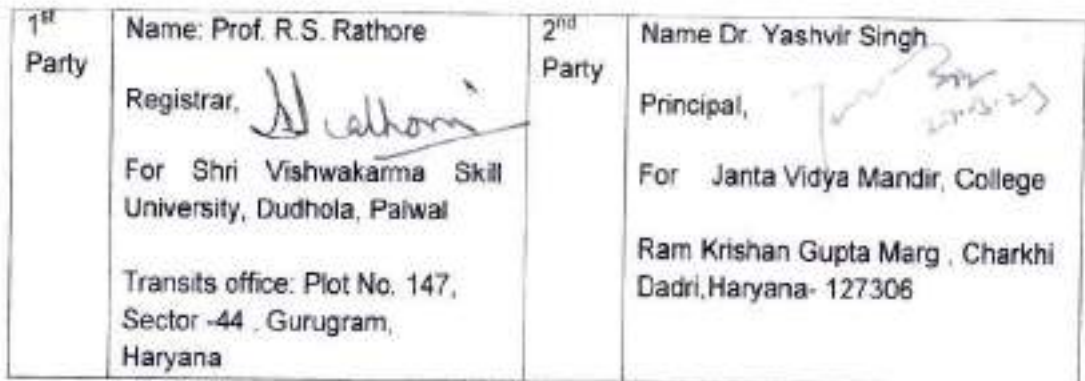 1st Party
Name: Prof. R.S. Rathore
Registrar,
For Shri Vishwakarma Skill
University, Dudhola, Palwal
Transits office: Plot No. 147,
Sector -44 . Gurugram,
Haryana
2nd Party
Name Dr. Yashvir Singh
Principal,
For Janta Vidya Mandir, College
Ram Krishan Gupta Marg , Charkhi
Dadri,Haryana- 127306